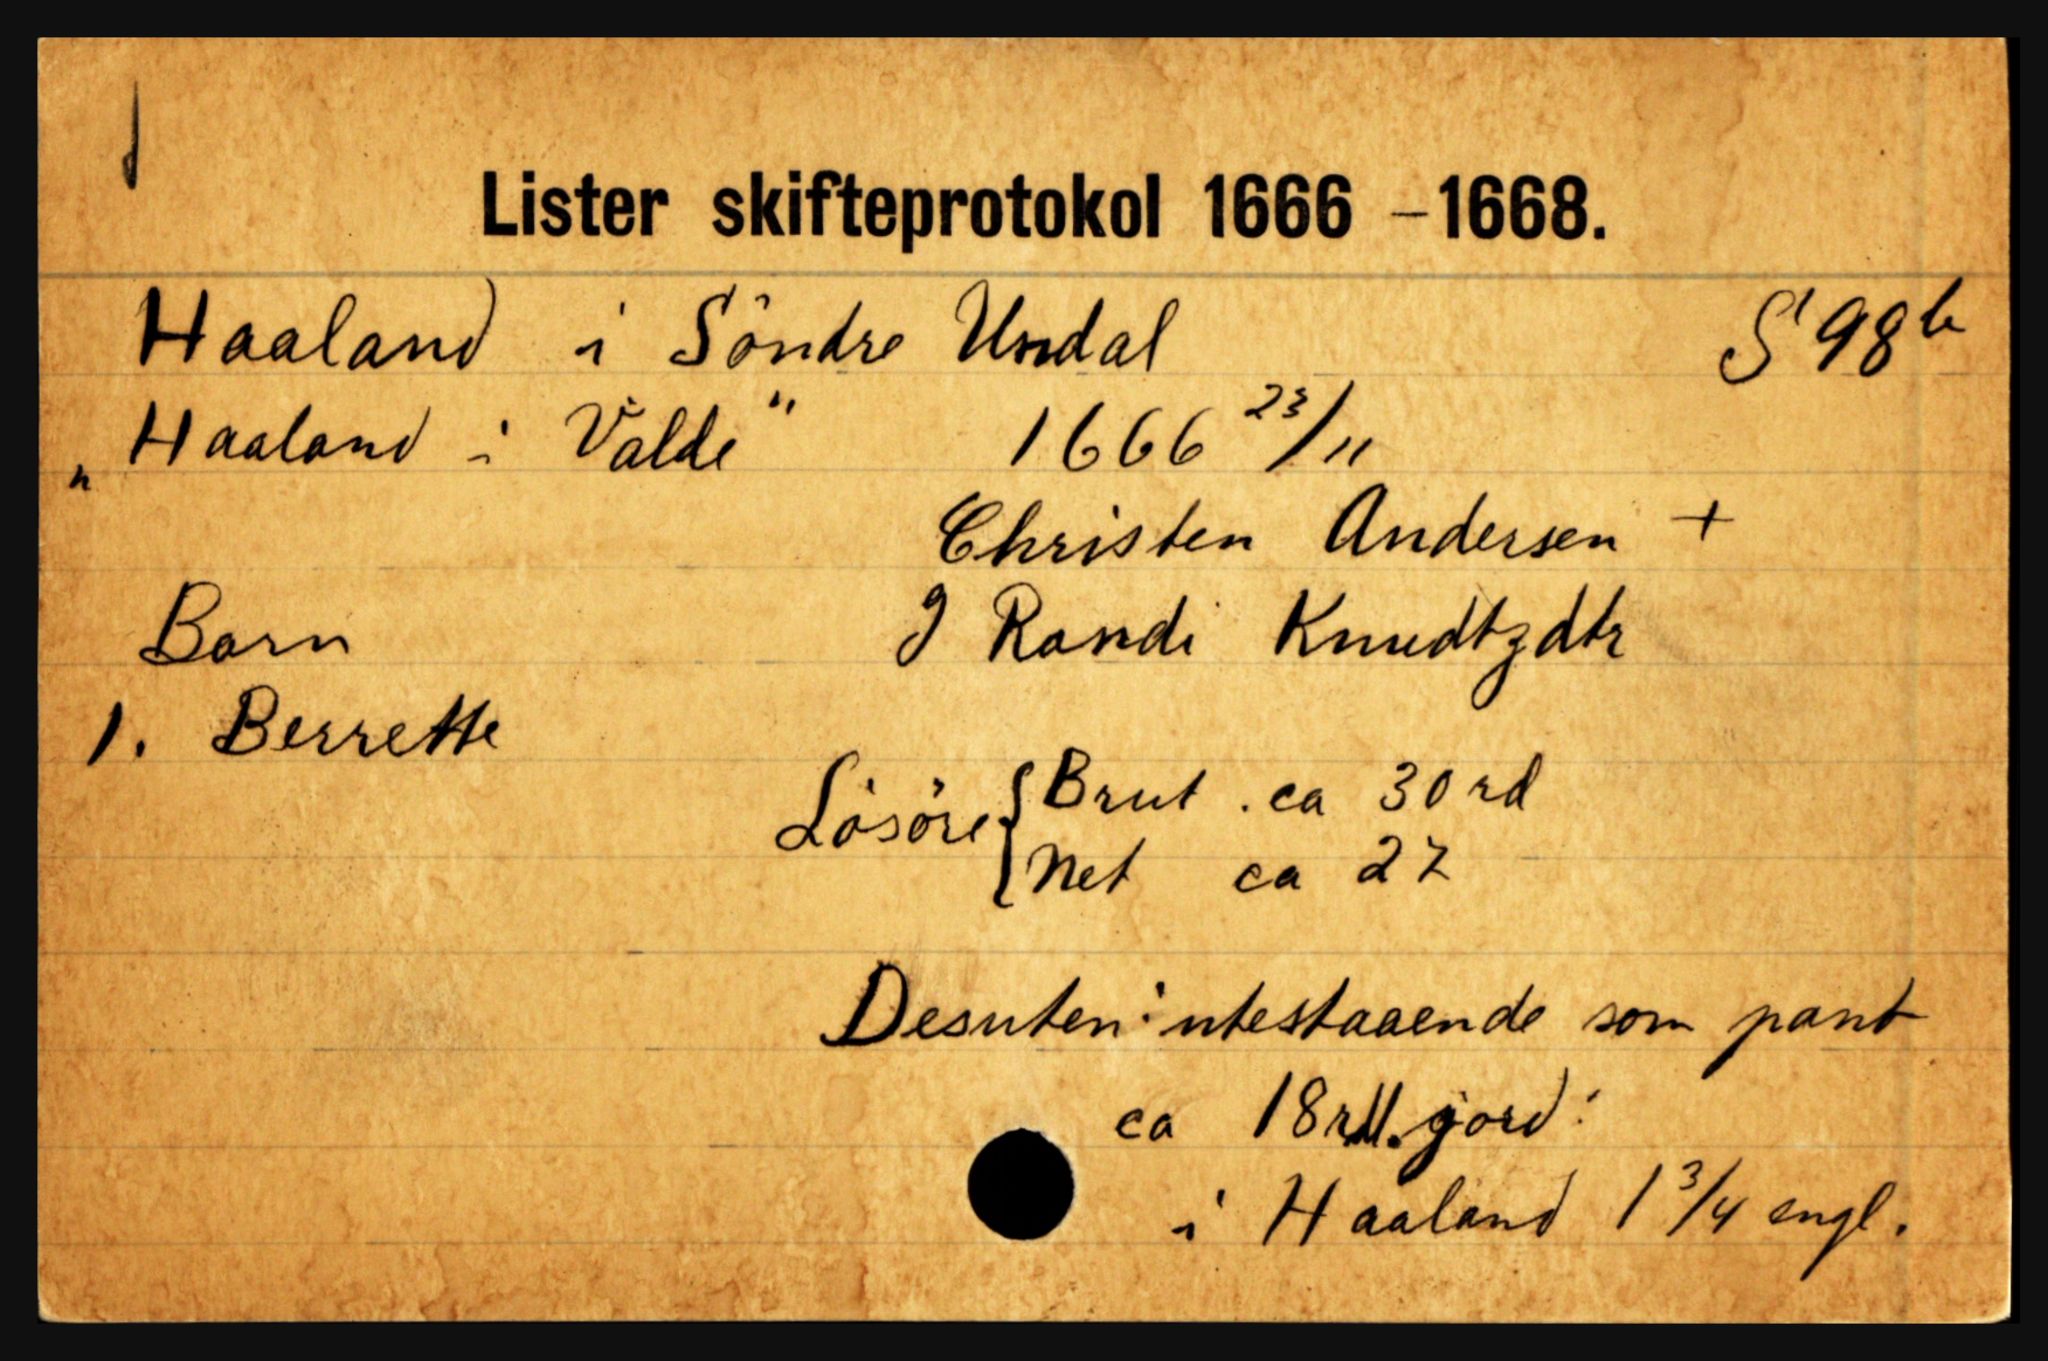 Lister skifteprotokol 1666 - 1668.
Haaland i Söndre Undal S 98 b
„Haaland i Valde" 1666 23/11
Christen Andersen +
Barn g Randi Knudtzdtr
1. Berrette
Lösöre { Brut. ca 30 rd
Net ca 27
Desuten: utestaaende som pant
ca 18 rdl. jord:
i Haaland 1 3/4 engl.